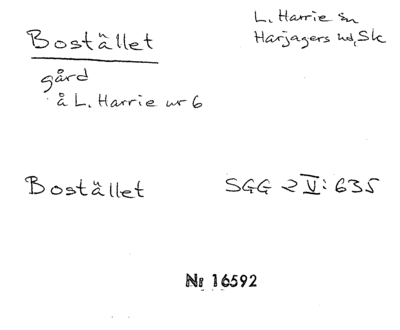 Bostället
L. Harrie sn
Harjagers hd, Sk
gård
å L. Harrie nr 6
Bostället
SGG 2 V: 635
Nr 16592